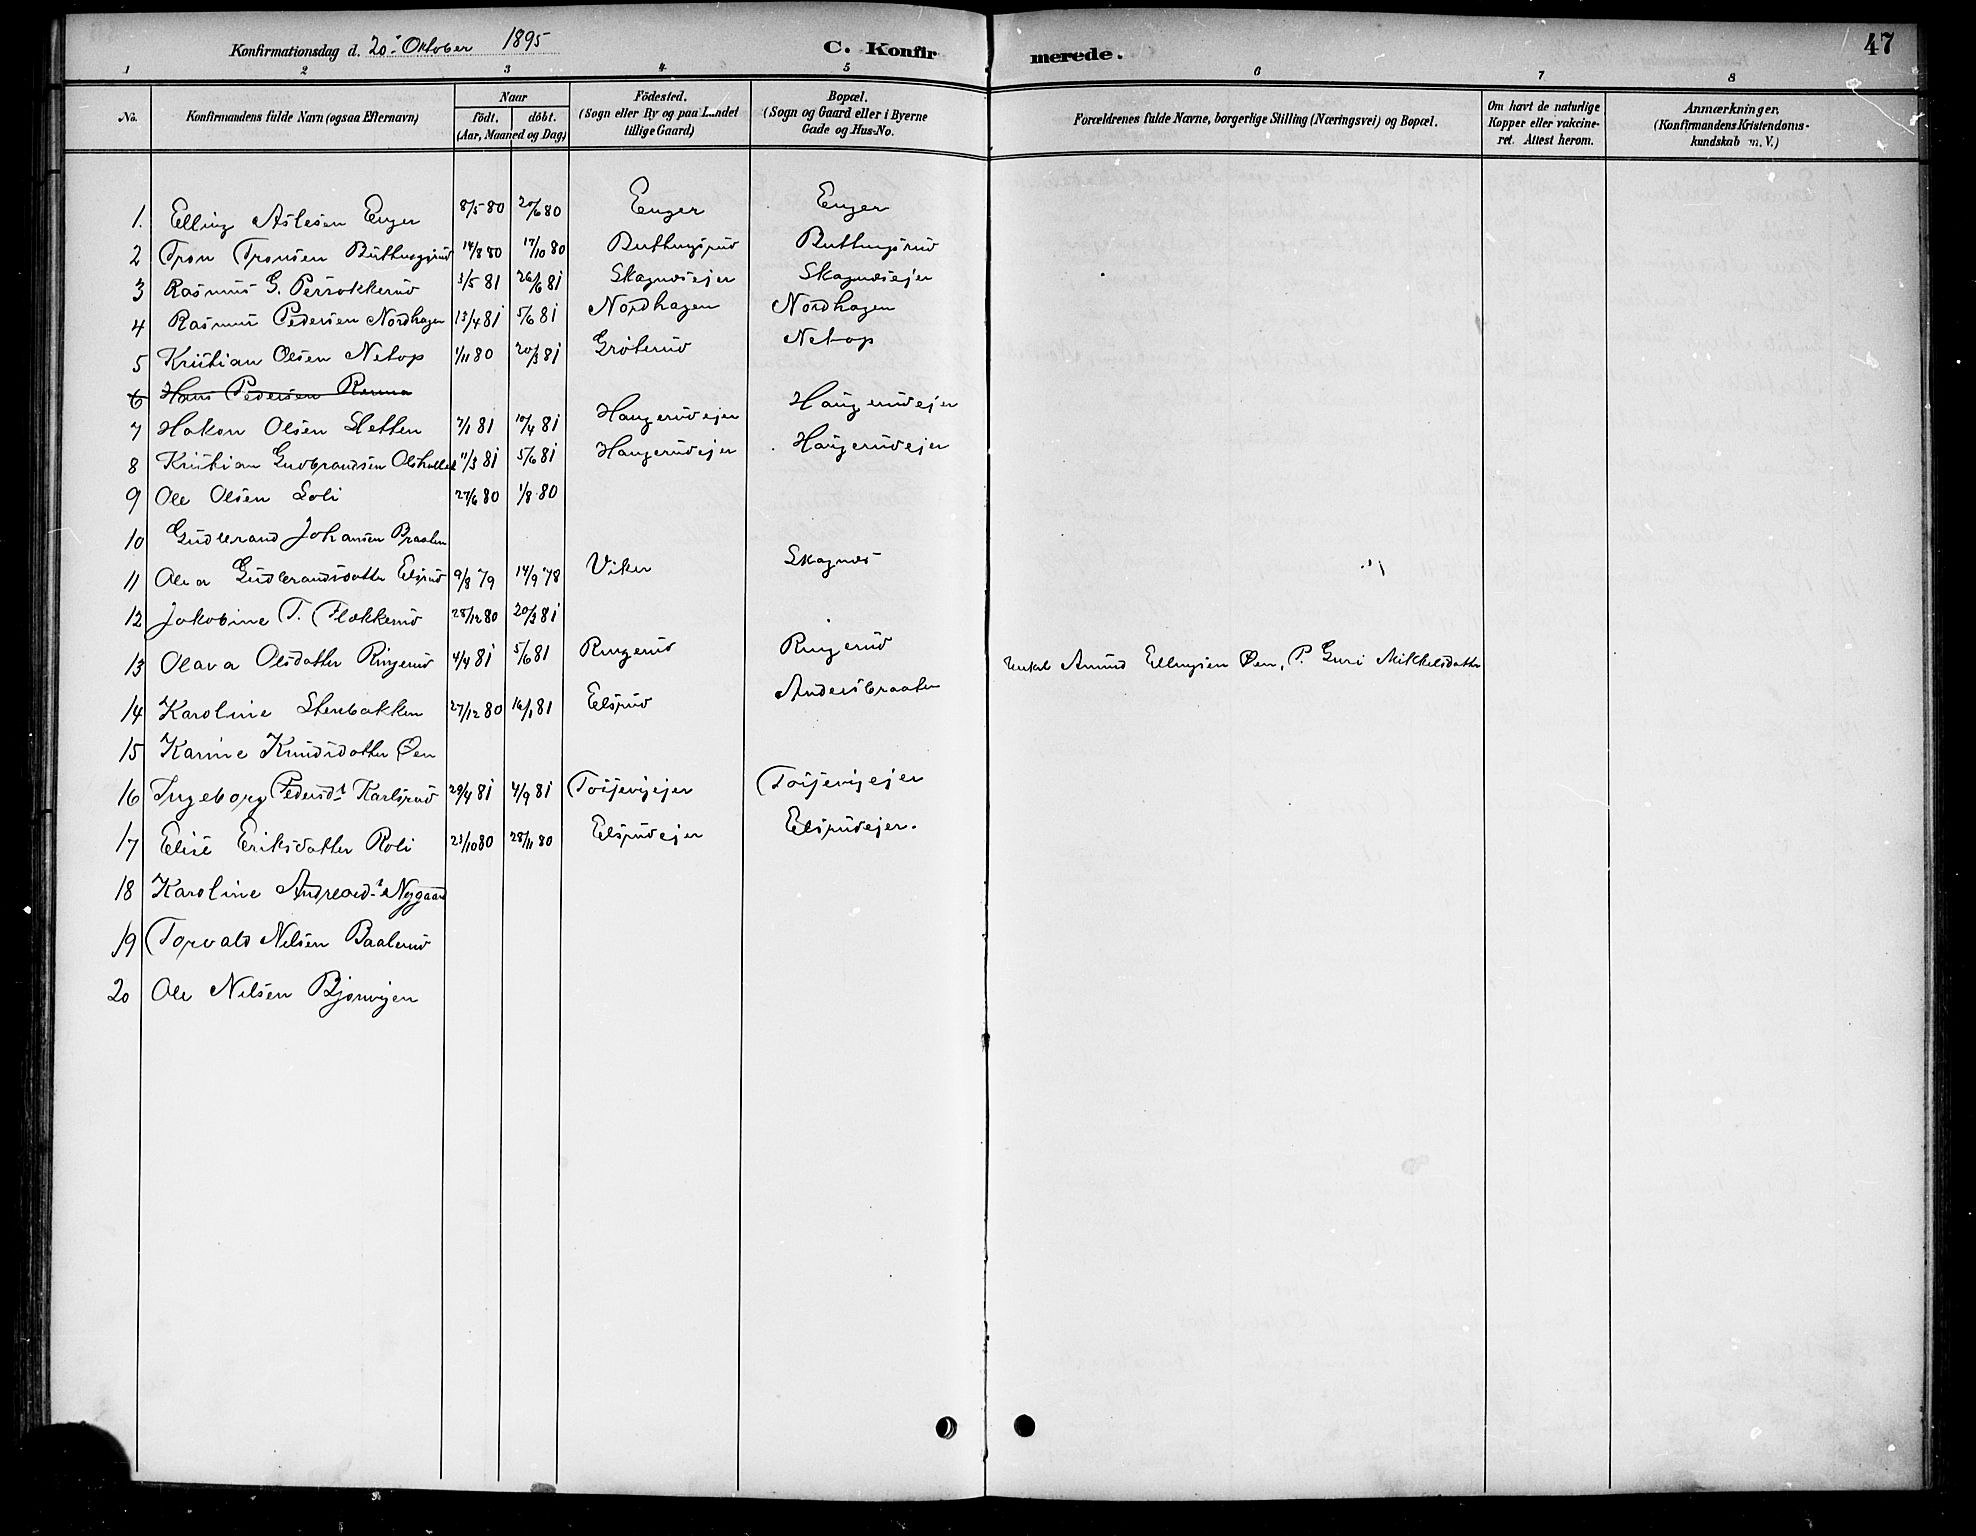 Konfirmationsdag d. 20de Oktober 1895 C. Konfirmerede. 47
1 2 3 4 5 6 7 8
No. Konfirmandens fulde Navn (ogsaa Efternavn) Naar födt. döbt. (Aar, Maaned og Dag) Födested. (Sogn eller By og paa Landet tillige Gaard) Bopæl. (Sogn og Gaard eller i Byerne Gade og Hus-No. Forældrenes fulde Navne, borgerlige Stilling (Næringsvei) og Bopæl. Om havt de naturlige Kopper eller vakcineret. Attest herom. Anmærkninger. (Konfirmandens Kristendomskundskab m. V.)
1. Elling Aslesen Enger 8/5 80 20/6 80 Enger Enger
2 Tron Tronsen Buttingsrud 14/8 80 17/10 80 Buttingsrud Buttingsrud
3 Rasmus G. Persokkerud 3/5 81 26/6 81 Skagnæsejer Skagnæsejer
4 Rasmus Pedersen Nordhagen 13/4 81 5/6 81 Nordhagen Nordhagen
5 Kristian Olsen Netop 1/11 80 20/3 81 Gröterud Netop
6 Hans Pedersen Renna
7 Hakon Olsen Sletten 2/1 81 10/4 81 Haugerudejer Haugerudejer
8 Kristian Gudbrandsen 11/3 81 5/6 81 Haugerudejer Haugerudejer
9 Ole Olsen Soli 27/6 80 1/8 80
10 Gudbrand Johansen Braaten
11 Olea Gudbrandsdatter Elsrud 9/8 79 14/9 78 Viker Skagnæs
12 Jakobine T. Flækkerud 28/12 80 20/3 81
13 Olava Olsdatter Ringerud 4/4 81 5/6 81 Ringerud Ringerud Amund Ellingsen Øen, P. Guri Mikkelsdatter
14 Karoline Stenbakken 27/12 80 16/1 81 Elsrud Andersbraaten
15 Karine Knudsdatter Øen
16 Ingeborg Pedersdt Karlsrud 29/4 81 4/9 81 Toijevigejer Toijevigejer
17 Elise Eriksdatter Roli 23/10 80 28/11 80 Elsrudejer Elsrudejer.
18 Karoline Andreasdt Nygaard
19 Torvald Nilsen Baalerud
20 Ole Nilsen Bjonvigen